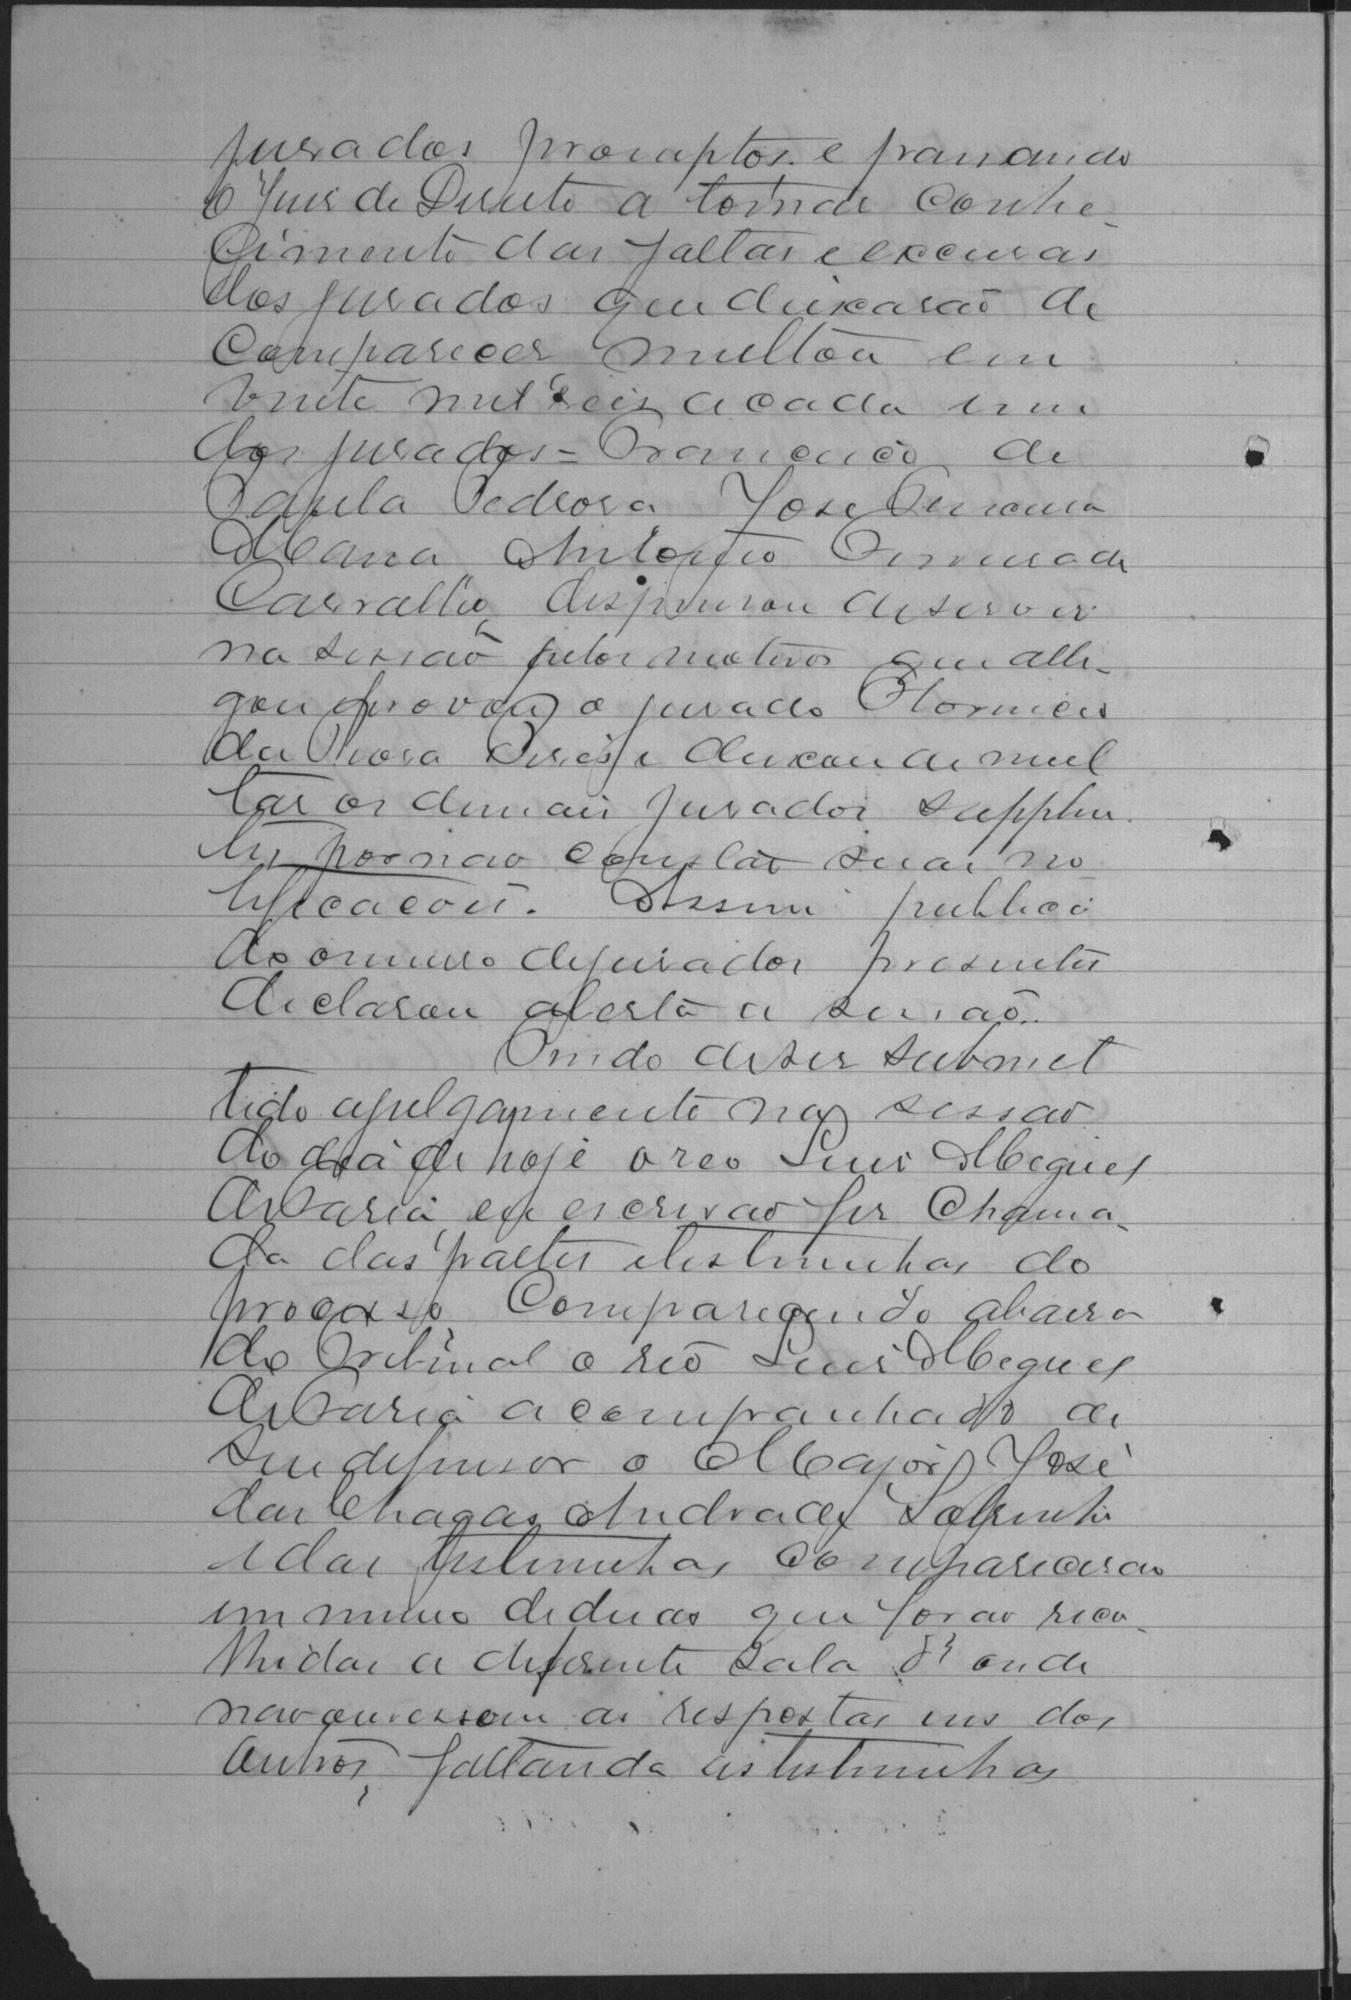 jurados promptos e passando
o Juis de Direito a tomar conhe-
cimento das faltas e excusas
dos jurados que deixarão de
Comparecer multou em
vinte mil reis a cada um
dos jurados = Francisco de
Paula Pedrosa José Ferreira
Maria Antonio Ferreira de
Carvalho, dispensou de servir
na sessão pelos motivos que alle-
gou provou o jurado
da Pires e deixou de mul
tar os demais jurados supplen
tes por não constar suas no
tificacões. Assim publica
do o numero de jurados presentes
declarou aberta a sessão.
Tendo de ser submet
tido a julgamento na sessão
do dia de hoje o reo Luis Miguel
de Faria, eu escrivão fis chama-
da das partes e testimunhas do
processo. Comparecendo a barra
do Tribunal o reo Luis Miguel
de Faria acompanhado de
seu defensor o Major José
das Chagas Andrade Sobrinho
e das testimunhas comparecerão
em numero de duas que forão reco-
lhidas a differente sala d'onde
não ouvessem as respostas uns dos
outros, faltando as testimunhas